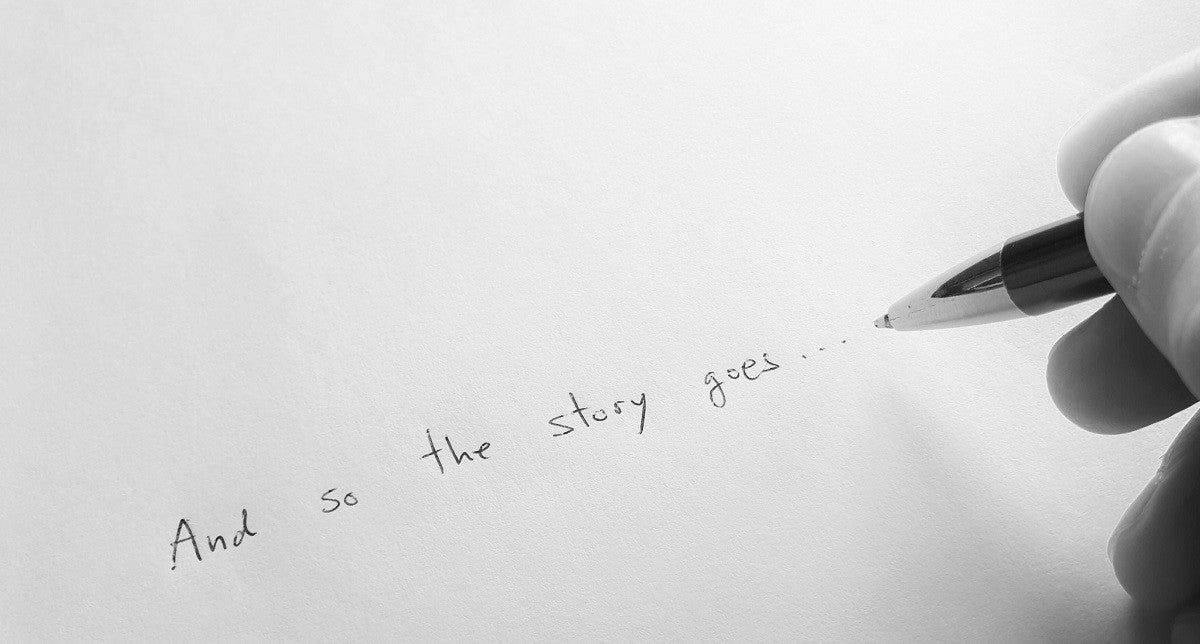 And so the story goes...